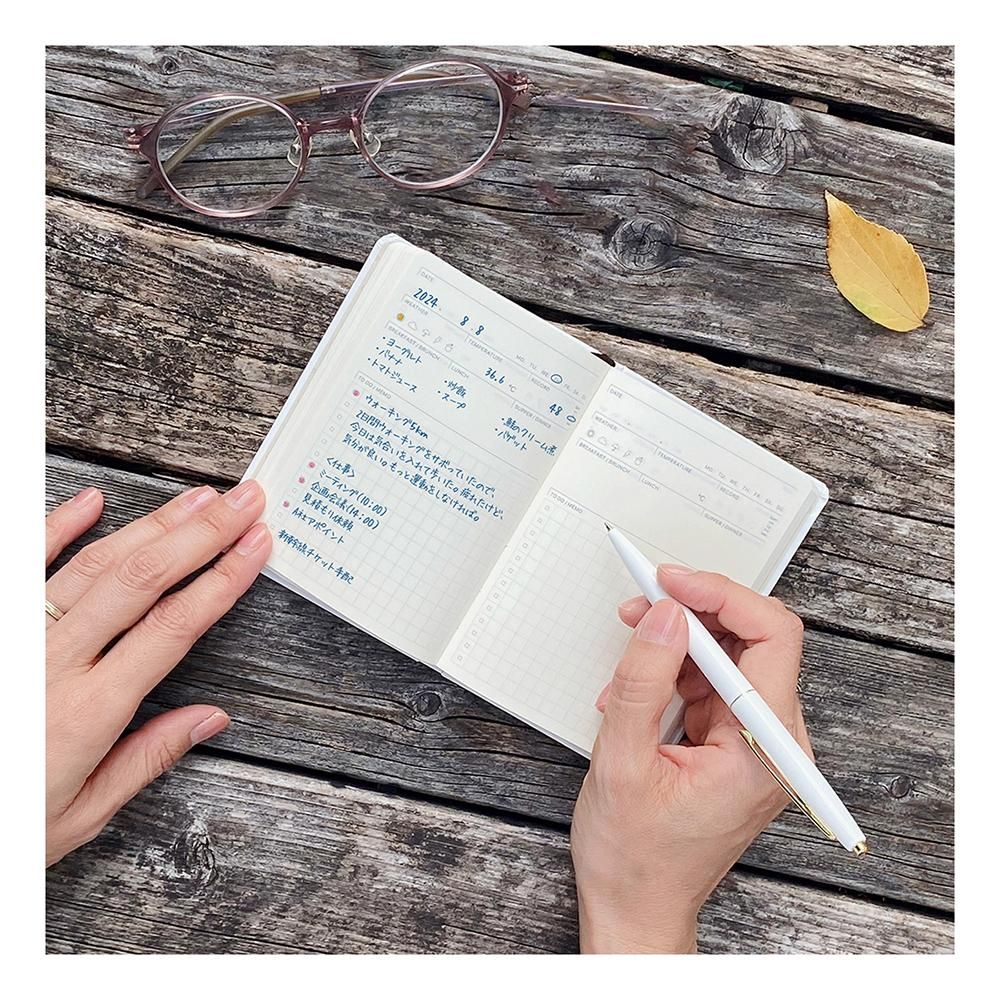 DATE
2024. 8.8
WEATHER
TEMPERATURE
MO. TU. WE. FR. SA.
36.6 ℃
RECORD
48
BREAKFAST / BRUNCH
・ヨーグルト
・バナナ
・トマトジュース
LUNCH
・炒飯
・スープ
SUPPER / DINNER
・鮭のクリーム煮
・バゲット
TO DO / MEMO
ウォーキング5km
2日間ウォーキングをサボっていたので、
今日は気合いを入れて歩いた。疲れたけど、
気分が良い。もっと運動をしなければ。
〈仕事〉
ミーティング(10:00)
企画会議(14:00)
見積もり依頼
A社アポイント
新幹線チケット手配
DATE
WEATHER
TEMPERATURE
MO. TU. WE. TH. FR. SA. SU.
℃
RECORD
BREAKFAST / BRUNCH
LUNCH
SUPPER / DINNER
TO DO / MEMO